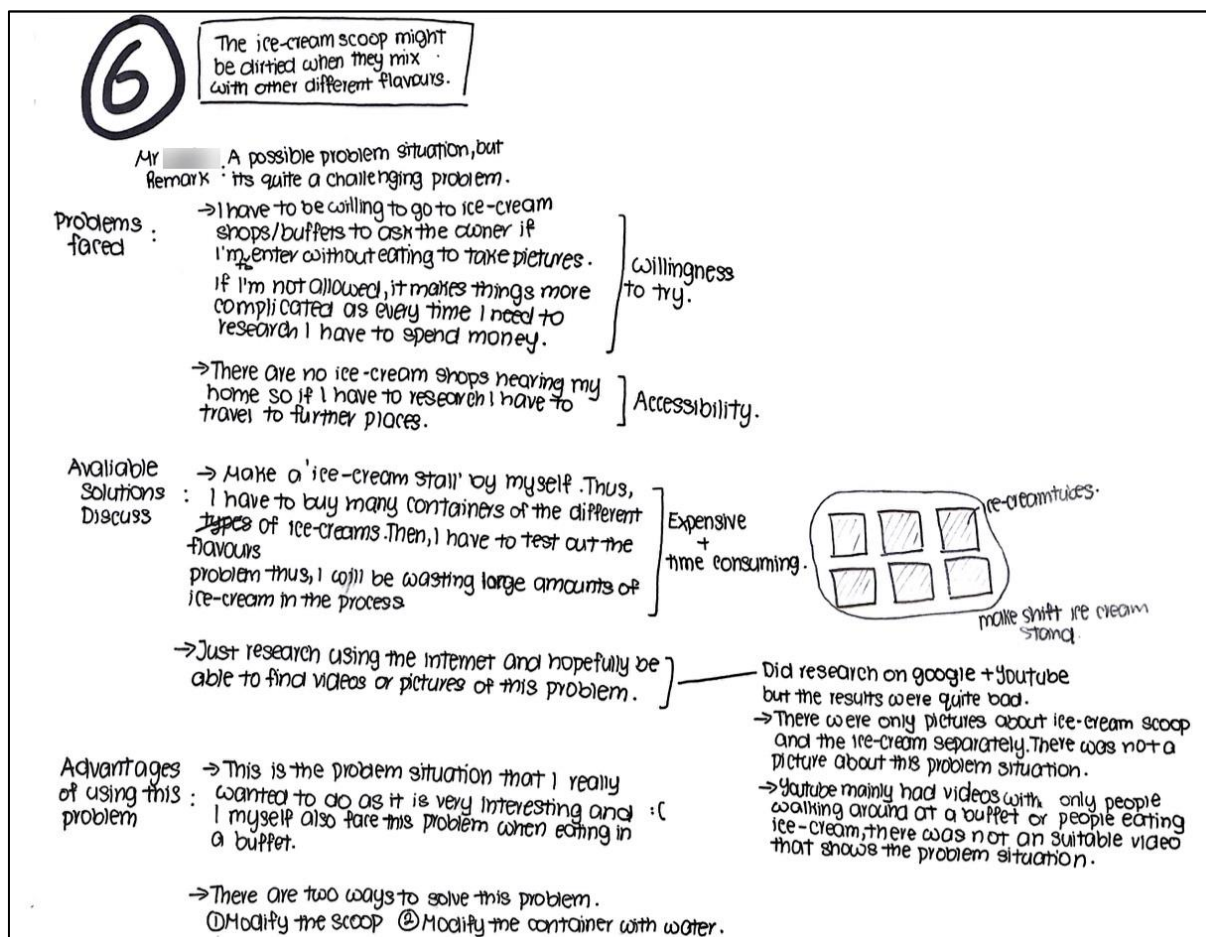 6
The ice-cream scoop might
be dirtied when they mix
with other different flavours.
Mr
Remark : A possible problem situation, but
its quite a challenging problem.
Problems
faced :
→I have to be willing to go to ice-cream
shops/buffets to ask the owner if
I'm to enter without eating to take pictures.
If I'm not allowed, it makes things more
complicated as every time I need to
research I have to spend money.
willingness
to try.
→There are no ice-cream shops nearing my
home so if I have to research I have to
travel to further places.
Accessibility.
Avaliable
Solutions :
Discuss
→ Make a 'ice-cream stall' by myself. Thus,
I have to buy many containers of the different
types of ice-creams. Then, I have to test out the
flavours
problem thus, I will be wasting large amounts of
ice-cream in the process
Expensive
+
time consuming.
ice-cream tubes.
make shift ice cream
stand.
→Just research using the internet and hopefully be
able to find videos or pictures of this problem.
Did research on google + Youtube
but the results were quite bad.
→There were only pictures about ice-cream scoop
and the ice-cream separately. There was not a
picture about this problem situation.
→Youtube mainly had videos with only people
walking around at a buffet or people eating
ice-cream, there was not an suitable video
that shows the problem situation.
Advantages
of using this :
problem
→This is the problem situation that I really
wanted to do as it is very interesting and :(
I myself also face this problem when eating in
a buffet.
→There are two ways to solve this problem.
①Modify the scoop ②Modify the container with water.